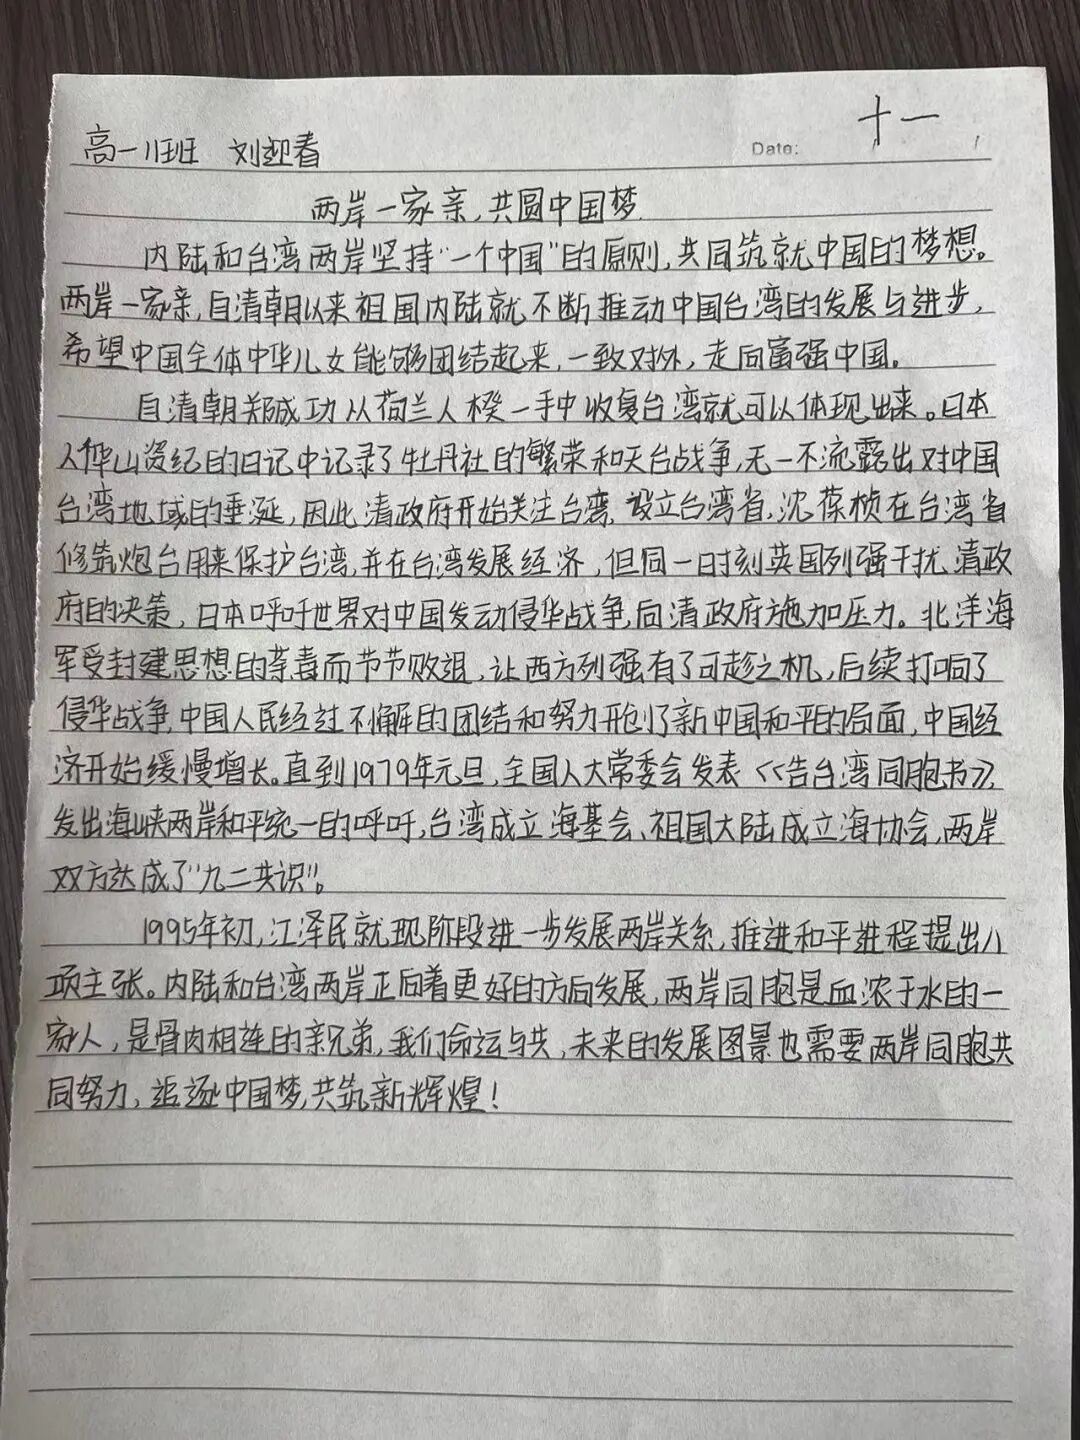 十一
Date: / /
高一11班 刘迎春
两岸一家亲,共圆中国梦
内陆和台湾两岸坚持“一个中国”的原则,共同筑就中国的梦想。
两岸一家亲,自清朝以来祖国内陆就不断推动中国台湾的发展与进步,
希望中国全体中华儿女能够团结起来,一致对外,走向富强中国。
自清朝郑成功从荷兰人揆一手中收复台湾就可以体现出来。日本
人桦山资纪的日记中记录了牡丹社的繁荣和天台战争,无一不流露出对中国
台湾地域的垂涎,因此清政府开始关注台湾,设立台湾省,沈葆桢在台湾省
修筑炮台用来保护台湾,并在台湾发展经济,但同一时刻英国列强干扰清政
府的决策,日本呼吁世界对中国发动侵华战争,向清政府施加压力。北洋海
军受封建思想的荼毒而节节败退,让西方列强有了可趁之机,后续打响了
侵华战争,中国人民经过不懈的团结和努力开创了新中国和平的局面,中国经
济开始缓慢增长。直到1979年元旦,全国人大常委会发表《告台湾同胞书》,
发出海峡两岸和平统一的呼吁,台湾成立海基会、祖国大陆成立海协会,两岸
双方达成了“九二共识”。
1995年初,江泽民就现阶段进一步发展两岸关系,推进和平进程提出八
项主张。内陆和台湾两岸正向着更好的方向发展,两岸同胞是血浓于水的一
家人,是骨肉相连的亲兄弟,我们命运与共,未来的发展图景也需要两岸同胞共
同努力,追逐中国梦,共筑新辉煌!